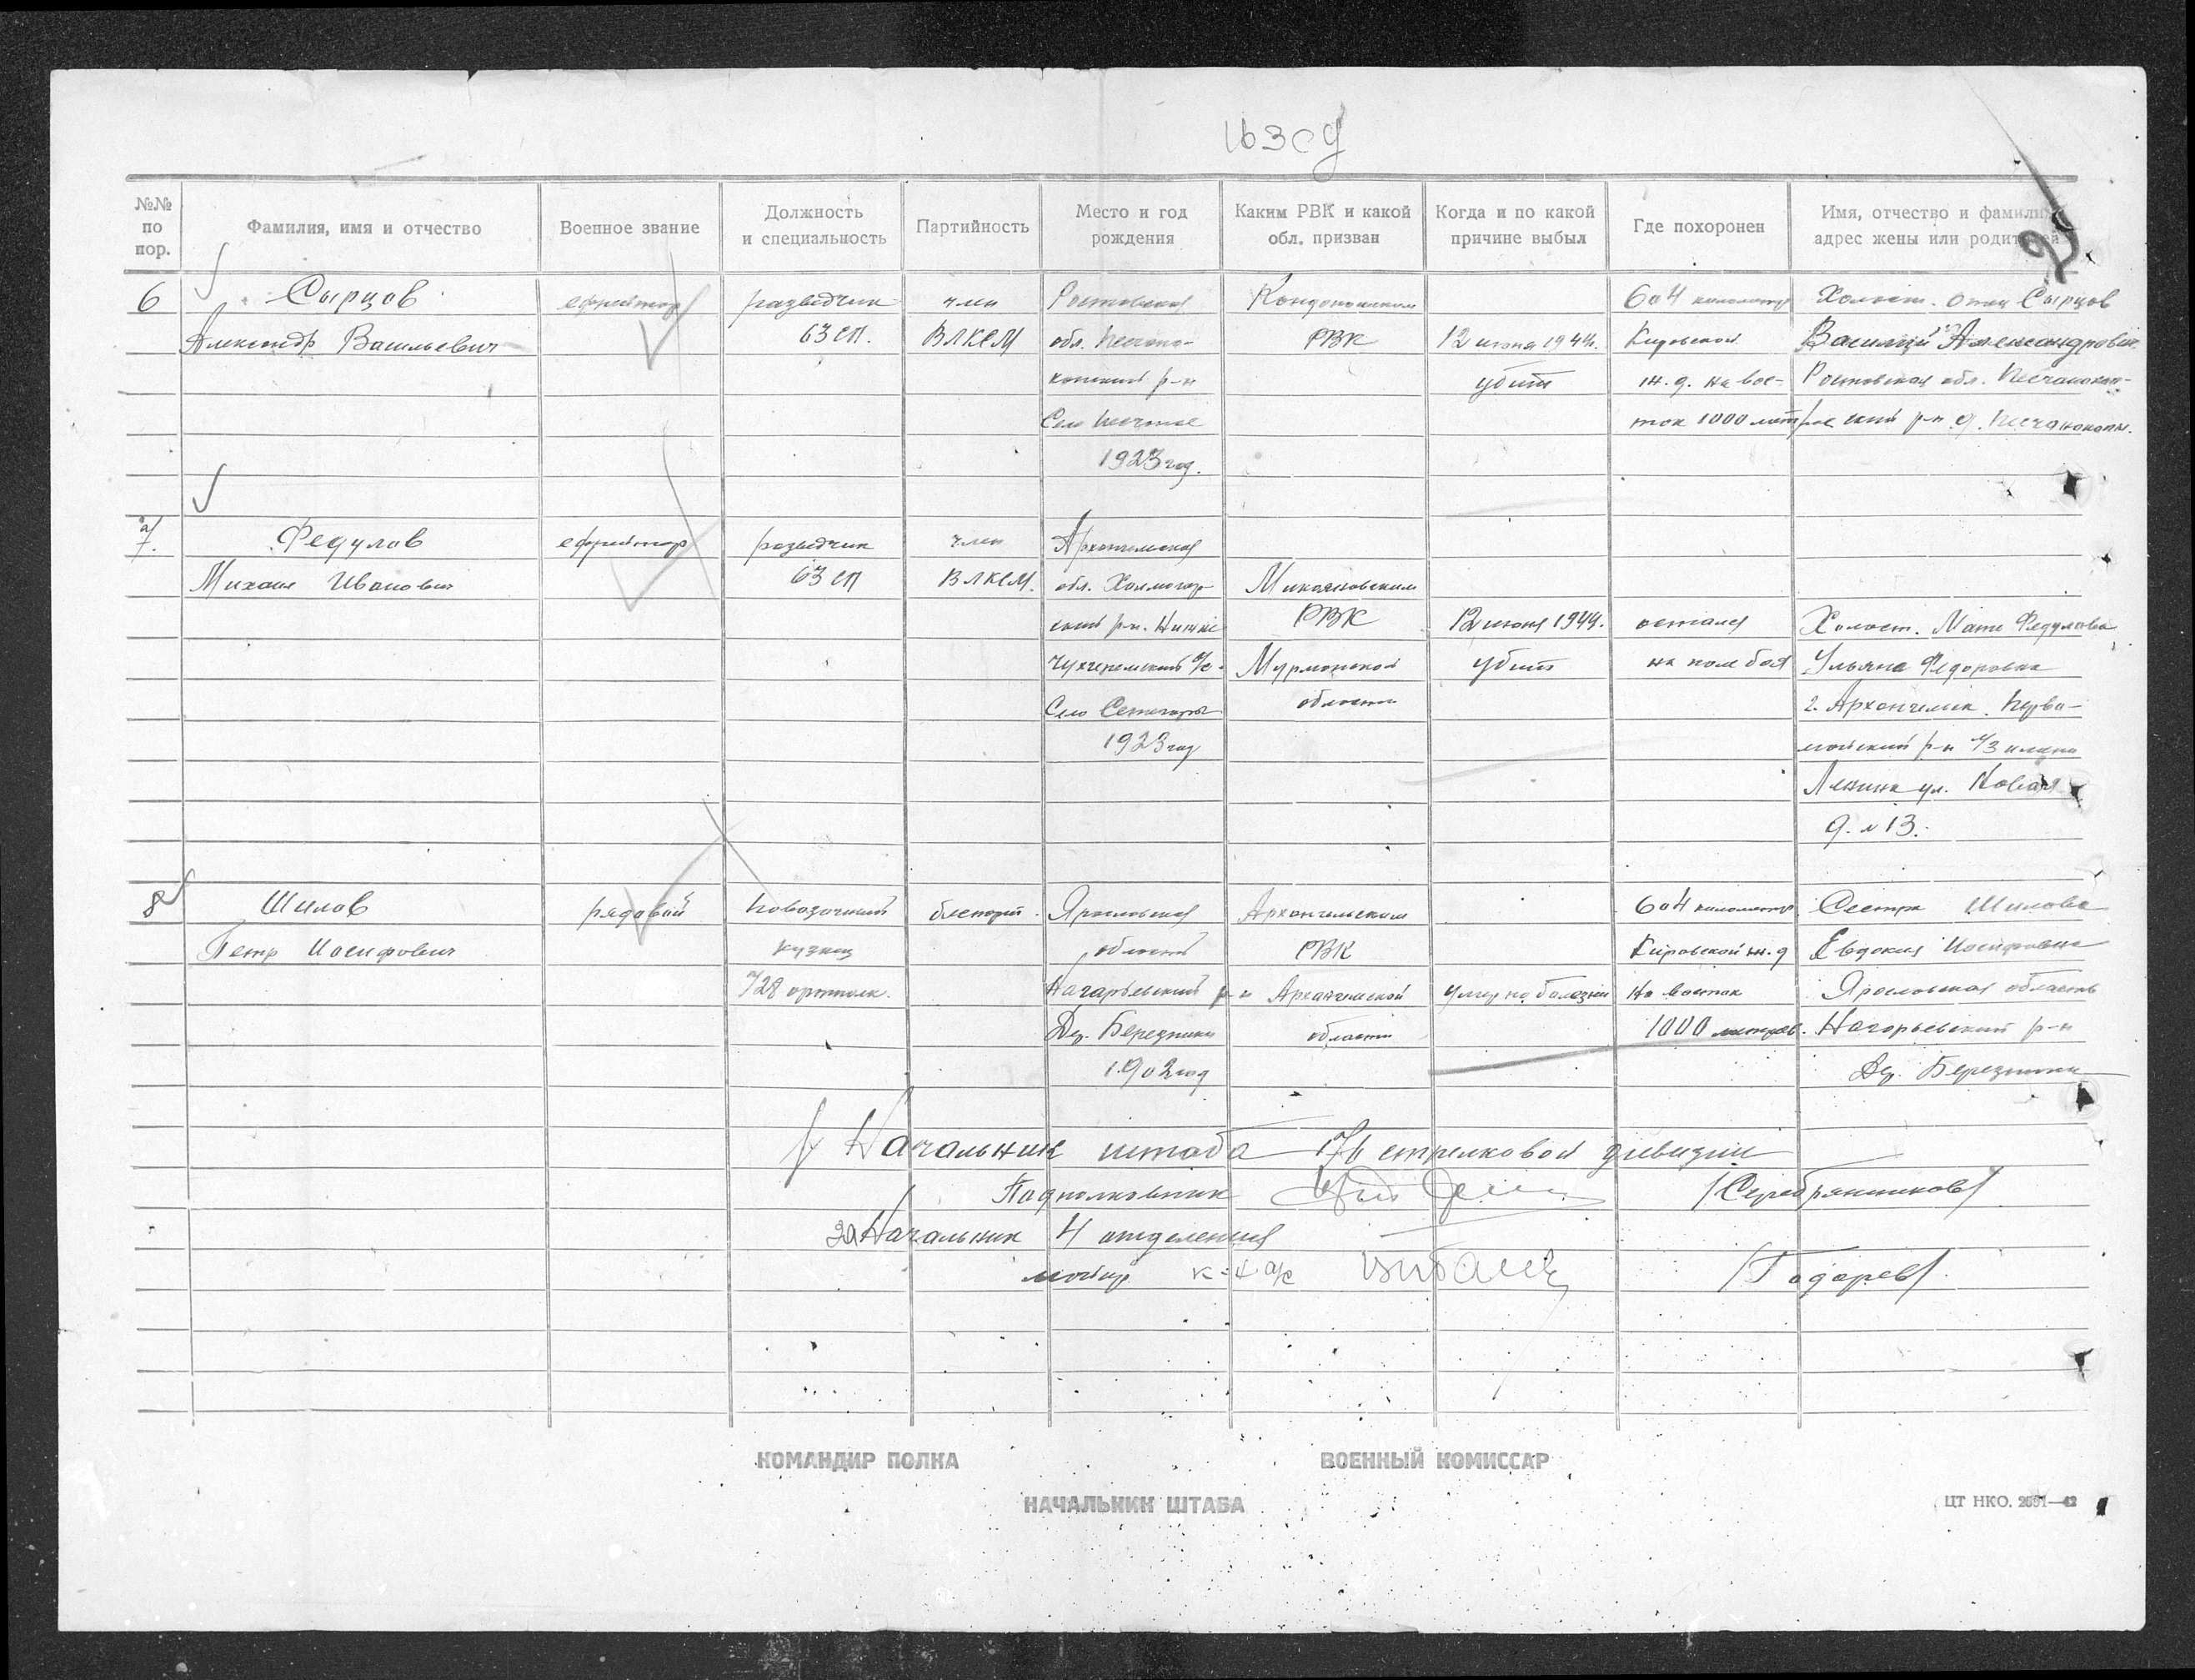 163сд
№№ по пор.
Фамилия, имя и отчество
Военное звание
Должность и специальность
Партийность
Место и год рождения
Каким РВК и какой обл. призван
Когда и по какой причине выбыл
Где похоронен
Имя, отчество и фамилия
адрес жены или родителей
6 Сырцов ефрейтор разведчик член Ростовская Кондопожским 604 километр Холост. Отец Сырцов
Александр Васильевич 63 сп. ВЛКСМ обл. Песчано- РВК 12 июня 1944г. Кировской Василий Александрович
копский р-н убит ж.д. на вос- Ростовская обл. Песчанокоп-
Село Песчаное ток 1000 метров ский р-н д. Песчанокопи.
1923 год.
7. Федулов ефрейтор разведчик член Архангельская
Михаил Иванович 63 сп ВЛКСМ. обл. Холмогор- Микояновским
ский р-н. Нижне РВК 12 июня 1944. остался Холост. Мать Федулова
с/с. Мурманской убит на поле боя Ульяна Федоровна
Село области г. Архангельск Перво-
1923 год майский р-н л/з имени
Ленина ул. Новая
д. № 13.
8 Шилов рядовой повозочный беспарт. Ярославская Архангельским 604 километр Сестра Шилова
Петр Иосифович кузнец область РВК Кировской ж.д Евдокия Иосифовна
728 артполк. Нагорьевский р-н Архангельской умер по болезни на восток Ярославская область
Дер. Березники области 1000 метров. Нагорьевский р-н
1902 год Дер. Березники
Начальник штаба 176 стрелковой дивизии
Подполковник /Серебрянников/
за Начальник 4 отделения
майор к-н а/с /Гадарев/
КОМАНДИР ПОЛКА
ВОЕННЫЙ КОМИССАР
НАЧАЛЬНИК ШТАБА
ЦТ НКО. 2691—42